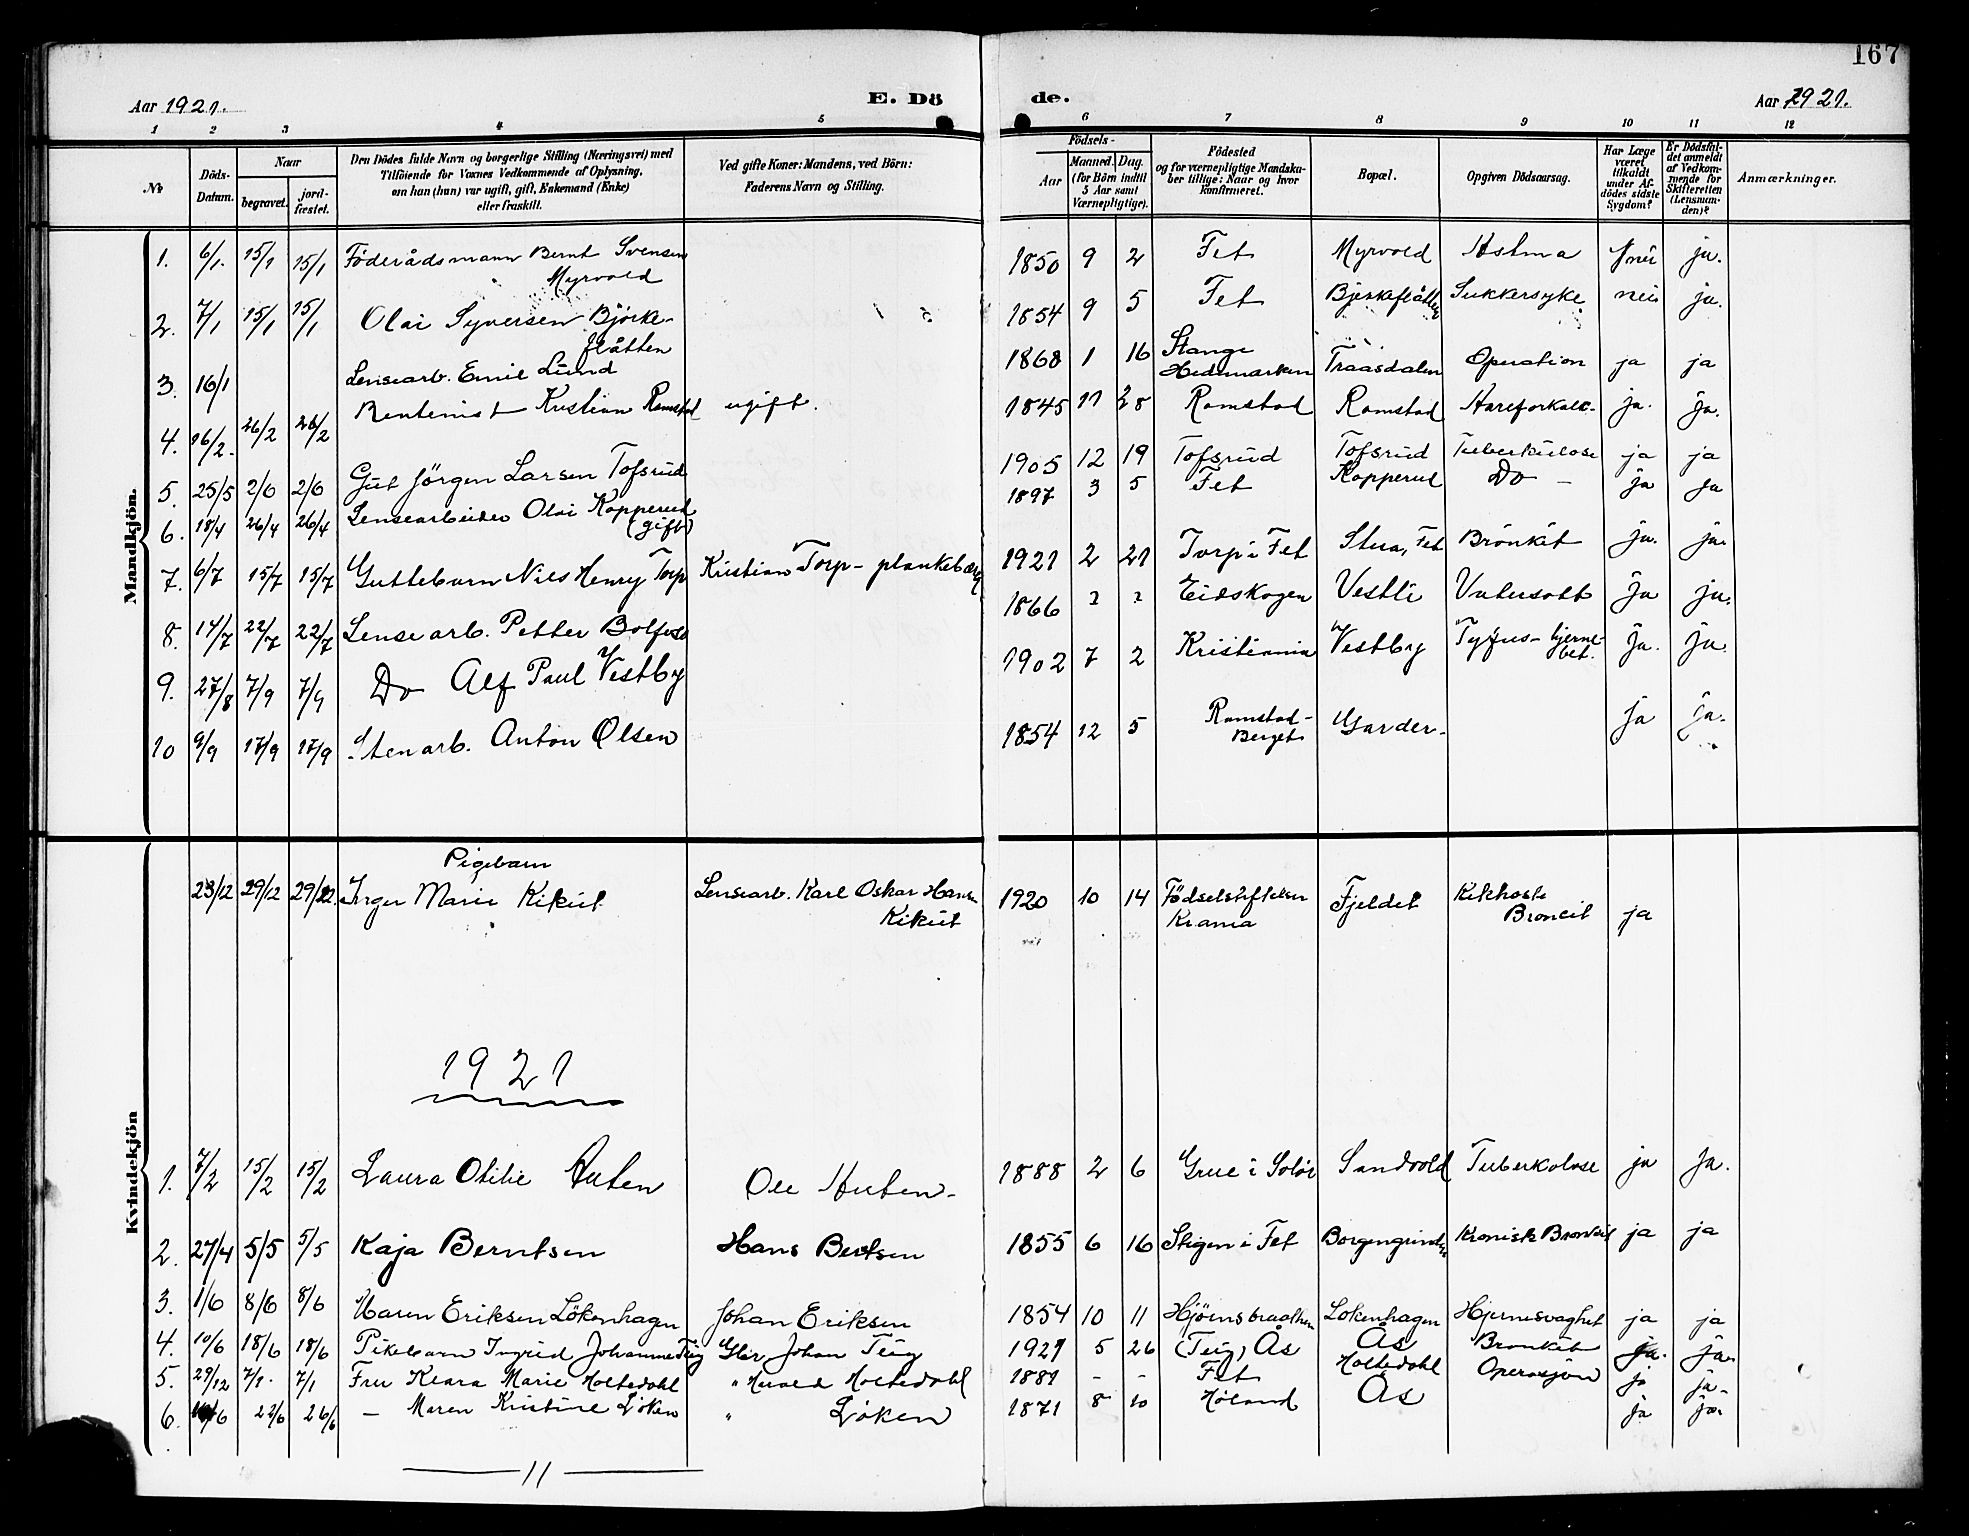 167
Aar 1921.
E. Dö
de.
Aar 1921.
1 2 3 4 5 6 7 8 9 10 11 12
No
Döds-
Datum.
Naar
begravet.
jord-
fæstet.
Den Dödes fulde Navn og borgerlige Stilling (Næringsvei) med
Tilföiende for Voxnes Vedkommende af Oplysning,
om han (hun) var ugift, gift, Enkemand (Enke)
eller fraskilt.
Ved gifte Koner: Mandens, ved Börn:
Faderens Navn og Stilling.
Födsels-
Aar
Maaned. Dag.
(for Börn indtil
5 Aar samt
Værnepligtige).
Födested
og for værnepligtige Mandska-
ber tillige: Naar og hvor
konfirmeret.
Bopæl.
Opgiven Dödsaarsag.
Har Læge
været
tilkaldt
under Af-
dödes sidste
Sygdom?
Er Dödsfal-
det anmeldt
af Vedkom-
mende for
Skifteretten
(Lensman-
den)?
Anmærkninger.
Mandkjön.
1. 6/1. 15/1 15/1 Föderådsmann Bernt Svensen
Myrvold
1850 9 2 Fet Myrvold Astma nei ja.
2. 7/1 15/1 15/1 Olai Syversen Björke-
flåtten
1854 9 5 Fet Bjerkeflåtten Sukkersyke nei ja.
3. 16/1 Lensearb. Emil Lund
1868 1 16 Stange
Hedemarken Traasdalen Operation ja ja
4. 16/2. 26/2 26/2 Rentenist Kristian Ramstad ugift.
1845 11 28 Ramstad Ramstad Aareforkalk- ja. ja.
5. 25/5 2/6 2/6 Gut Jörgen Larsen Tofsrud
1905 12 19 Tofsrud Tofsrud Tuberkulose ja ja
6. 18/4 26/4 26/4 Lensearbeider Olai Kopperud
(gift)
1897 3 5 Fet Kopperud Do — ja ja
7. 6/7 15/7 15/7 Guttebarn Nils Henry Torp Kristian Torp - plankebærer
1921 2 21 Torp i Fet Stua, Fet Brönkit ja. ja.
8. 14/7 22/7 22/7 Lensearb. Petter Bolfoss
1866 ? ? Eidskogen Vestli Vatersott ja ja.
9. 27/8 7/9 7/9 Do Alf Paul Vestby
1902 7 2 Kristiania Vestby Tyfus- hjerne-
bet. ja. ja.
10 9/9 17/9 17/9 Stenarb. Anton Olsen
1854 12 5 Ramstad-
Berget Garder. ja ja.
Kvindekjön
Pigebarn
23/12 29/12 29/12 Inger Marie Kikut Lensearb. Karl Oskar Hansen
Kikut
1920 10 14 Födselsstiftelsen
Kr.ania Fjeldet Kikhoste
Broncit ja
1921
1. 7/2 15/2 15/2 Laura Otilie Auten Ole Auten-
1888 2 6 Grue i Solör Sandvold Tuberkolose ja ja.
2. 27/4 5/5 5/5 Kaja Berntsen Hans Berntsen
1855 6 16 Stigen i Fet Borgengrinden Kronisk Bronkit ja ja
3. 1/6 8/6 8/6 Maren Eriksen Lökenhagen Johan Eriksen
1854 10 11 Hjörnsbraathen Lökenhagen Hjernesvaghet ja ja
4. 10/6 18/6 18/6 Pikebarn Ingrid Johanne Teig Gbr Johan Teig
1921 5 26 (Teig) Ås Ås Bronkit ja. ja.
5. 29/12 7/1. 7/1 Fru Klara Marie Holtedahl " Harald Holtedahl
1881 - - Fet Holtedahl Operasjon ja ja-
6. 22/6 26/6 — Maren Kristine Löken " Löken
1871 8 10 Höland Ås ja ja.
— 11 —